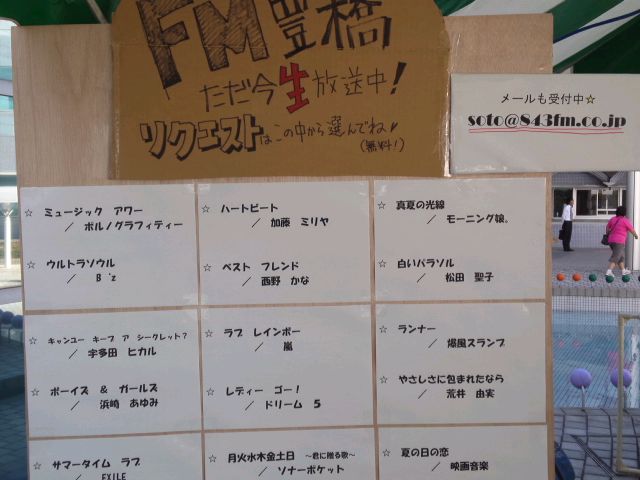 FM豊橋
ただ今生放送中！
リクエストはこの中から選んでね♥
(無料！)
メールも受付中☆
soto@843fm.co.jp
☆ ミュージック アワー
／ ポルノグラフィティー
☆ ウルトラソウル
／ B'z
☆ ハートビート
／ 加藤 ミリヤ
☆ ベスト フレンド
／ 西野 かな
☆ 真夏の光線
／ モーニング娘。
☆ 白いパラソル
／ 松田 聖子
☆ キャンユー キープ ア シークレット？
／ 宇多田 ヒカル
☆ ボーイズ ＆ ガールズ
／ 浜崎 あゆみ
☆ ラブ レインボー
／ 嵐
☆ レディー ゴー！
／ ドリーム 5
☆ ランナー
／ 爆風スランプ
☆ やさしさに包まれたなら
／ 荒井 由実
☆ サマータイム ラブ
／ EXILE
☆ 月火水木金土日 ～君に贈る歌～
／ ソナーポケット
☆ 夏の日の恋
／ 映画音楽